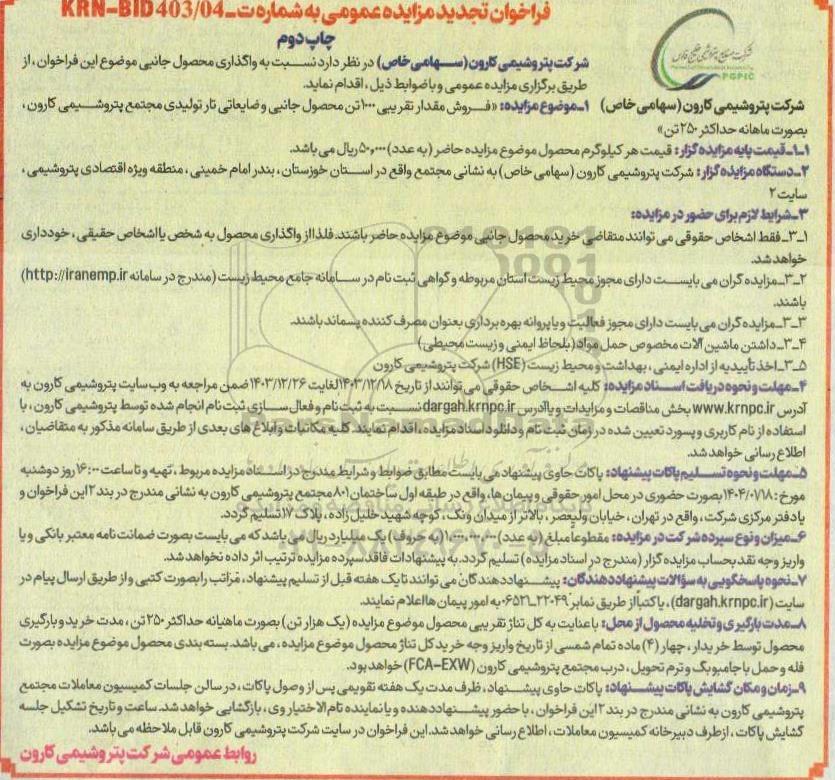 فراخوان تجدید مزایده عمومی به شماره ت_KRN-BID 403/04
چاپ دوم
شرکت صنایع پتروشیمی خلیج فارس
PGPIC
شرکت پتروشیمی کارون (سهامی خاص)
شرکت پتروشیمی کارون (سهامی خاص) در نظر دارد نسبت به واگذاری محصول جانبی موضوع این فراخوان، از
طریق برگزاری مزایده عمومی و با ضوابط ذیل، اقدام نماید.
۱_موضوع مزایده: «فروش مقدار تقریبی ۱۰۰۰ تن محصول جانبی و ضایعاتی تار تولیدی مجتمع پتروشیمی کارون،
بصورت ماهانه حداکثر ۲۵۰ تن»
۱_۱_قیمت پایه مزایده گزار: قیمت هر کیلوگرم محصول موضوع مزایده حاضر (به عدد) ۵۰,۰۰۰ ریال می باشد.
۲_دستگاه مزایده گزار: شرکت پتروشیمی کارون (سهامی خاص) به نشانی مجتمع واقع در استان خوزستان، بندر امام خمینی، منطقه ویژه اقتصادی پتروشیمی،
سایت ۲
۳_شرایط لازم برای حضور در مزایده:
۳_۱_فقط اشخاص حقوقی می توانند متقاضی خرید محصول جانبی موضوع مزایده حاضر باشند. فلذا از واگذاری محصول به شخص یا اشخاص حقیقی، خودداری
خواهد شد.
۳_۲_مزایده گران می بایست دارای مجوز محیط زیست استان مربوطه و گواهی ثبت نام در سامانه جامع محیط زیست (مندرج در سامانه http://iranemp.ir)
باشند.
۳_۳_مزایده گران می بایست دارای مجوز فعالیت و یا پروانه بهره برداری بعنوان مصرف کننده پسماند باشند.
۳_۴_داشتن ماشین آلات مخصوص حمل مواد (بلحاظ ایمنی و زیست محیطی)
۳_۵_اخذ تأییدیه از اداره ایمنی، بهداشت و محیط زیست (HSE) شرکت پتروشیمی کارون
۴_مهلت و نحوه دریافت اسناد مزایده: کلیه اشخاص حقوقی می توانند از تاریخ ۱۴۰۳/۱۲/۱۸ لغایت ۱۴۰۳/۱۲/۲۶ ضمن مراجعه به وب سایت پتروشیمی کارون به
آدرس www.krnpc.ir بخش مناقصات و مزایدات و یا آدرس dargah.krnpc.ir نسبت به ثبت نام و فعال سازی ثبت نام انجام شده توسط پتروشیمی کارون، با
استفاده از نام کاربری و پسورد تعیین شده در زمان ثبت نام و دانلود اسناد مزایده، اقدام نمایند. کلیه مکاتبات و ابلاغ های بعدی از طریق سامانه مذکور به متقاضیان،
اطلاع رسانی خواهد شد.
۵_مهلت و نحوه تسلیم پاکات پیشنهاد: پاکات حاوی پیشنهاد می بایست مطابق ضوابط و شرایط مندرج در اسناد مزایده مربوط، تهیه و تا ساعت ۱۶:۰۰ روز دوشنبه
مورخ: ۱۴۰۴/۰۱/۱۸ بصورت حضوری در محل امور حقوقی و پیمان ها، واقع در طبقه اول ساختمان ۸۰۱ مجتمع پتروشیمی کارون به نشانی مندرج در بند ۲ این فراخوان و
یا دفتر مرکزی شرکت، واقع در تهران، خیابان ولیعصر، بالاتر از میدان ونک، کوچه شهید خلیل زاده، پلاک ۱۷ تسلیم گردد.
۶_میزان و نوع سپرده شرکت در مزایده: مقطوعا مبلغ (به عدد) ۱,۰۰۰,۰۰۰,۰۰۰ (به حروف) یک میلیارد ریال می باشد که می بایست بصورت ضمانت نامه معتبر بانکی و یا
واریز وجه نقد بحساب مزایده گزار (مندرج در اسناد مزایده) تسلیم گردد. به پیشنهادات فاقد سپرده مزایده ترتیب اثر داده نخواهد شد.
۷_نحوه پاسخگویی به سؤالات پیشنهاد دهندگان: پیشنهاد دهندگان می توانند تا یک هفته قبل از تسلیم پیشنهاد، مراتب را بصورت کتبی و از طریق ارسال پیام در
سایت (dargah.krnpc.ir)، یا کتباً از طریق نمابر ۲۲۰۴۹-۰۶۵۲۱ به امور پیمان ها اعلام نمایند.
۸_مدت بارگیری و تخلیه محصول از محل: با عنایت به کل تناژ تقریبی محصول موضوع مزایده (یک هزار تن) بصورت ماهیانه حداکثر ۲۵۰ تن، مدت خرید و بارگیری
محصول توسط خریدار، چهار (۴) ماده تمام شمسی از تاریخ واریز وجه خرید کل تناژ محصول موضوع مزایده، می باشد. بسته بندی محصول موضوع مزایده بصورت
فله و حمل با جامبوبگ و ترم تحویل، درب مجتمع پتروشیمی کارون (FCA-EXW) خواهد بود.
۹_زمان و مکان گشایش پاکات پیشنهاد: پاکات حاوی پیشنهاد، ظرف مدت یک هفته تقویمی پس از وصول پاکات، در سالن جلسات کمیسیون معاملات مجتمع
پتروشیمی کارون به نشانی مندرج در بند ۲ این فراخوان، با حضور پیشنهاد دهنده و یا نماینده تام الاختیار وی، بازگشایی خواهد شد. ساعت و تاریخ تشکیل جلسه
گشایش پاکات، از طرف دبیرخانه کمیسیون معاملات، اطلاع رسانی خواهد شد. این فراخوان در سایت شرکت پتروشیمی کارون قابل ملاحظه می باشد.
روابط عمومی شرکت پتروشیمی کارون